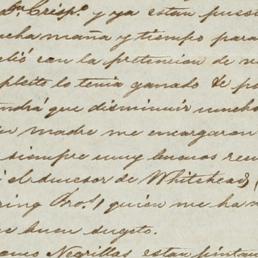 Dn. Crispo. y ya estan puest
ucha maña y tiempo para
elió con la pretencion de re
pleito lo tenia ganado
ndrá que disminuir mucho
madre me encargaron
siempre muy buenos rec
el sucesor de Whitehead,
ring Bros, quien me ha
buen sugeto.
Negrillas estan